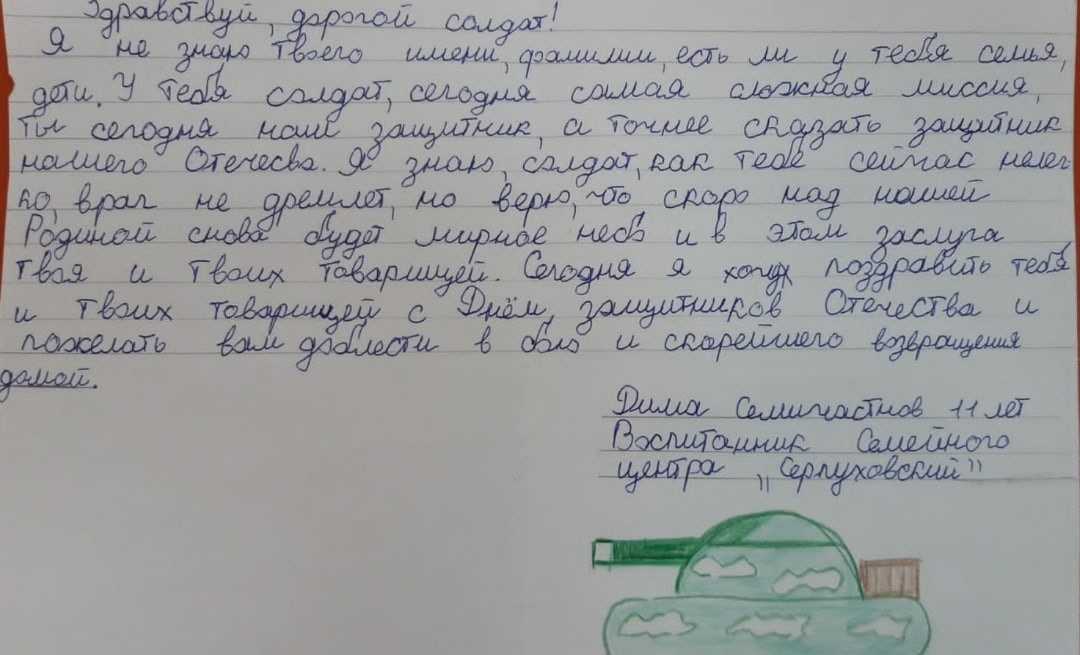 Здравствуй, дорогой солдат!
Я не знаю твоего имени, фамилии, есть ли у тебя семья,
дети. У тебя солдат, сегодня самая сложная миссия,
ты сегодня наш защитник, а точнее сказать защитник
нашего Отечесва. Я знаю, солдат, как тебе сейчас нелег
ко, враг не дремлет, но верю, что скоро над нашей
Родиной снова будет мирное небо и в этом заслуга
твоя и твоих товарищей. Сегодня я хочу поздравить тебя
и твоих товарищей с Днём, защитников Отечества и
пожелать вам доблести в бою и скорейшего возвращения
домой.
Дима Семичастнов 11 лет
Воспитанник Семейного
центра „Серпуховский"